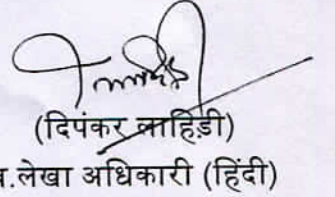 (दिपंकर लाहिड़ी)
व.लेखा अधिकारी (हिंदी)